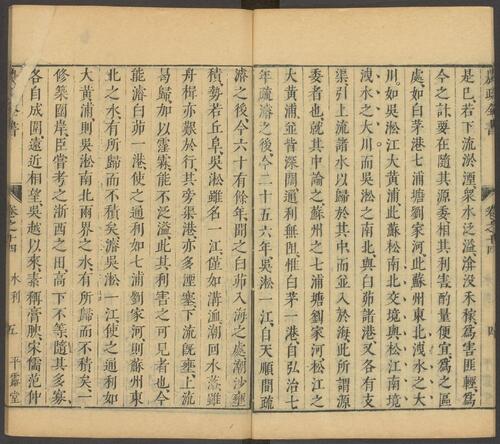 農政全書
卷之十四
是已若下流淤湮衆水泛溢渰沒禾稼爲害匪輕爲
今之計要在隨其源委相其利害酌量便宜爲之區
處如白茅港七浦塘劉家河此蘇州東北洩水之大
川如吳淞江大黃浦此蘇松南北交境與松江南境
洩水之大川而吳淞之南北與白茆諸港又各有支
渠引上流諸水以歸於其中而並入於海此所謂源
委者也就其中論之蘇州之七浦塘劉家河松江之
大黃浦並皆深闊通利無阻惟白茅一港自弘治七
年疏濬之後今二十五六年吳淞一江自天順間疏
濬之後今六十有餘年聞之白茆入海之處潮沙壅
積勢若丘阜吳淞雖名一江僅如溝洫潮回水落雖
舟楫亦艱於行其旁渠港亦多湮塞下流旣壅上流
曷歸加以霪霖能不泛溢此其利害之可見者也今
能濬白茆一港使之通利如七浦劉家河則蘇州東
北之水有所歸而不積矣濬吳淞一江使之通利如
大黃浦則吳淞南北兩界之水有所歸而不積矣一
修築圍岸臣嘗考之浙西之田高下不等隨其多寡
各自成圍遠近相望吳越以來素稱膏腴宋儒范仲
卷之十四 水利 五 平露堂